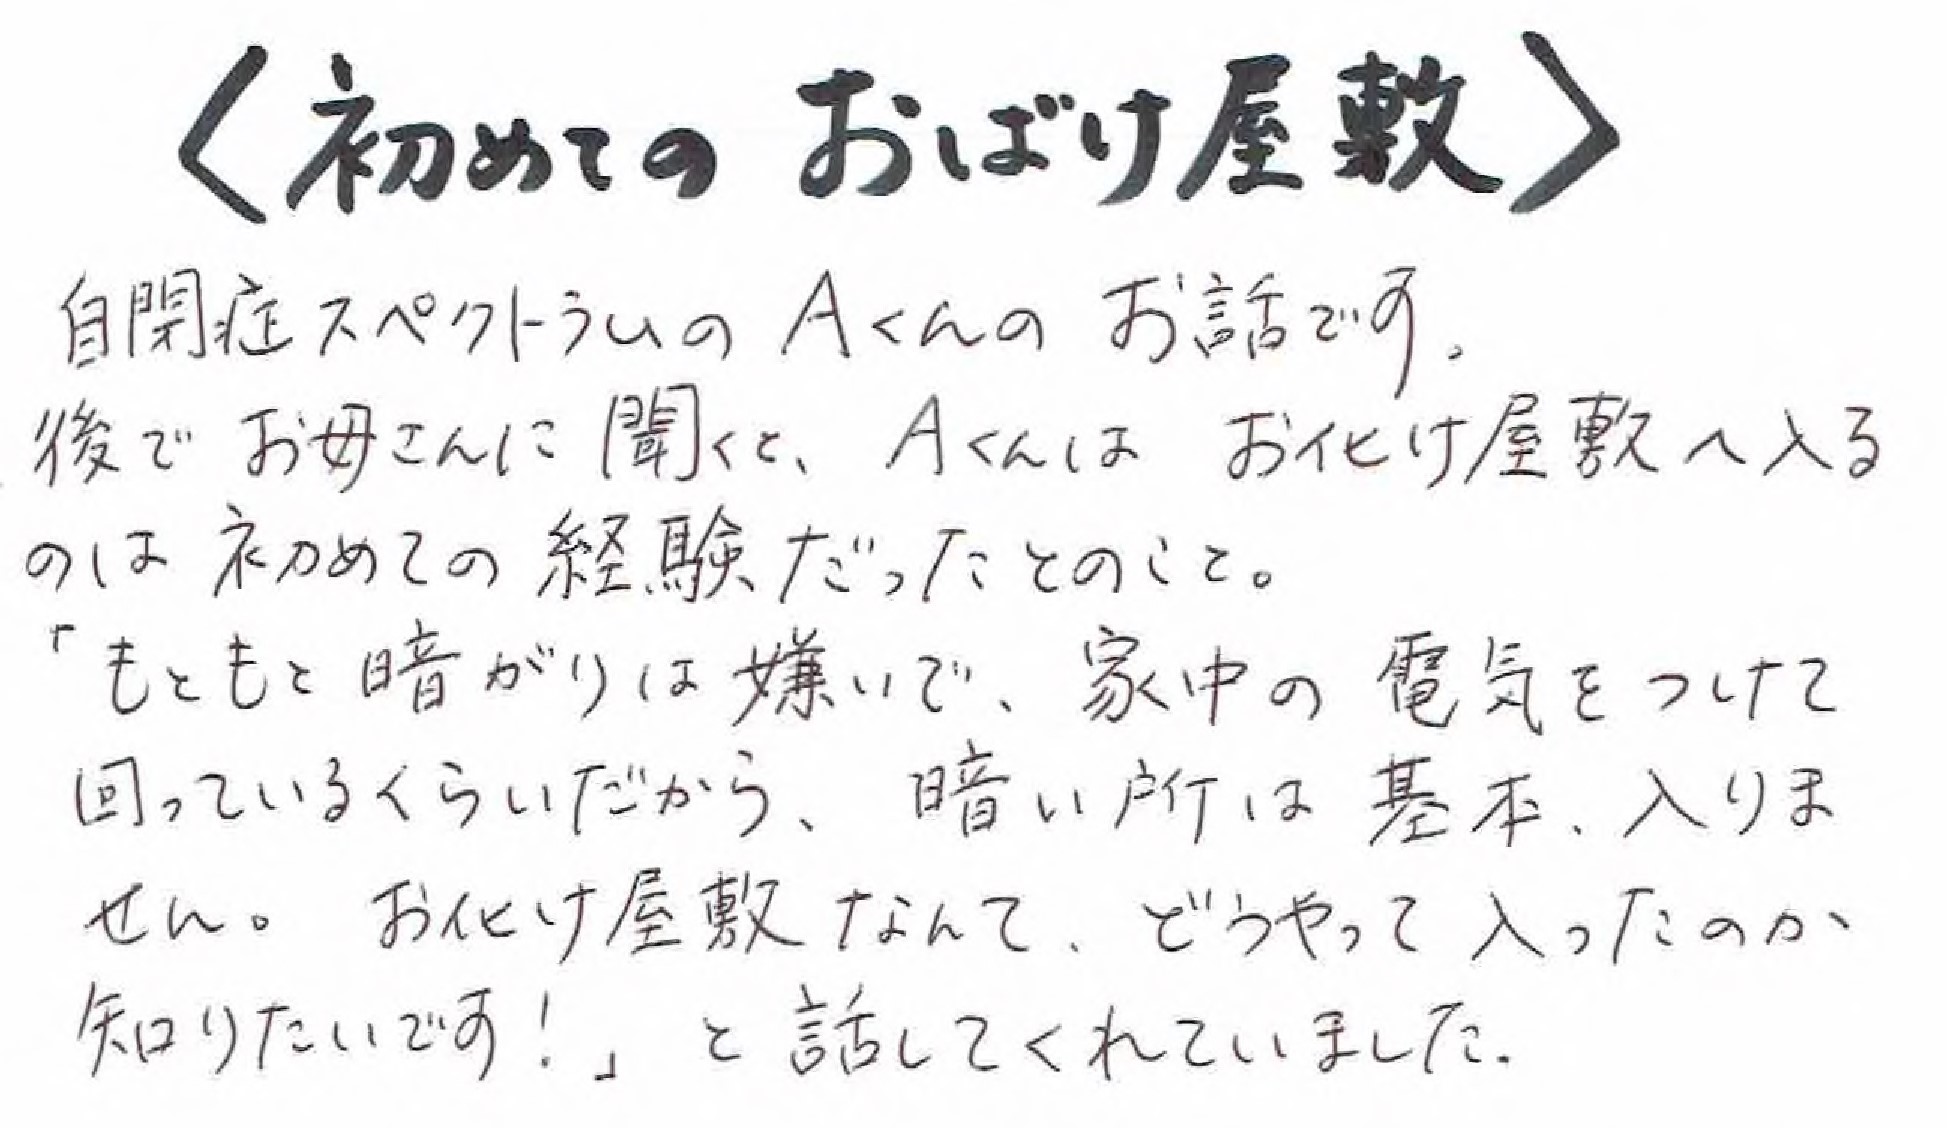 〈初めての おばけ屋敷〉
自閉症スペクトラムの Aくんの お話です。
後で お母さんに 聞くと、Aくんは お化け屋敷へ入る
のは 初めての 経験だったとのこと。
「もともと 暗がりは 嫌いで、家中の 電気をつけて
回っているくらいだから、暗い所は 基本、入りま
せん。 お化け屋敷なんて、どうやって 入ったのか
知りたいです!」と 話してくれていました。